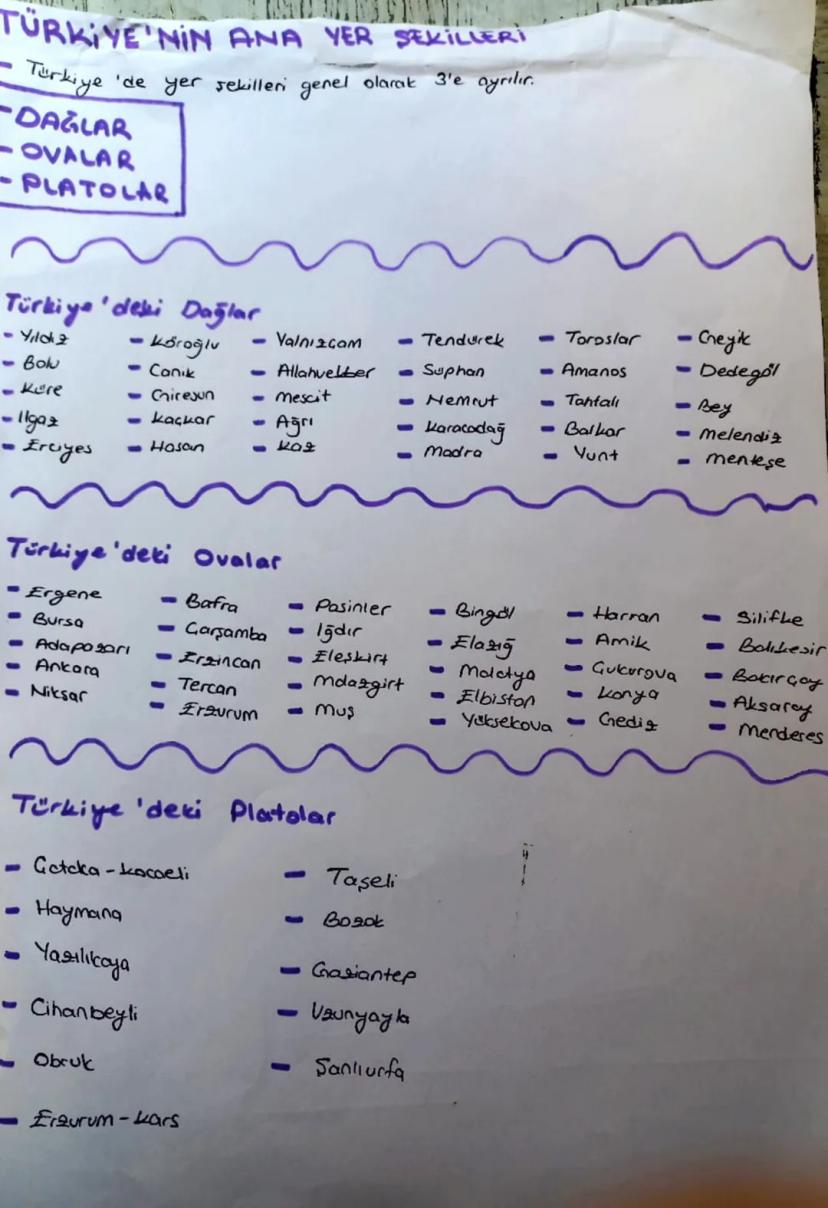 TÜRKİYE'NİN ANA YER ŞEKİLLERİ
- Türkiye'de yer şekilleri genel olarak 3'e ayrılır.
- DAĞLAR
- OVALAR
- PLATOLAR
Türkiye'deki Dağlar
- Yıldız - Köroğlu - Yalnızcam - Tendürek - Toroslar - Geyik
- Bolu - Canik - Allahuekber - Süphan - Amanos - Dedegöl
- Küre - Giresun - Mescit - Nemrut - Tahtalı - Bey
- Ilgaz - Kaçkar - Ağrı - Karacadağ - Bolkar - Melendiz
- Erciyes - Hasan - Kaz - Madra - Yunt - Menteşe
Türkiye'deki Ovalar
- Ergene - Bafra - Pasinler - Bingöl - Harran - Silifke
- Bursa - Çarşamba - Iğdır - Elazığ - Amik - Balıkesir
- Adapazarı - Erzincan - Eleşkirt - Malatya - Çukurova - Bakırçay
- Ankara - Tercan - Malazgirt - Elbistan - Konya - Aksaray
- Niksar - Erzurum - Muş - Yüksekova - Gediz - Menderes
Türkiye'deki Platolar
- Çatalca - Kocaeli - Taşeli
- Haymana - Bozok
- Yazılıkaya - Gaziantep
- Cihanbeyli - Uzunyayla
- Obruk - Şanlıurfa
- Erzurum - Kars